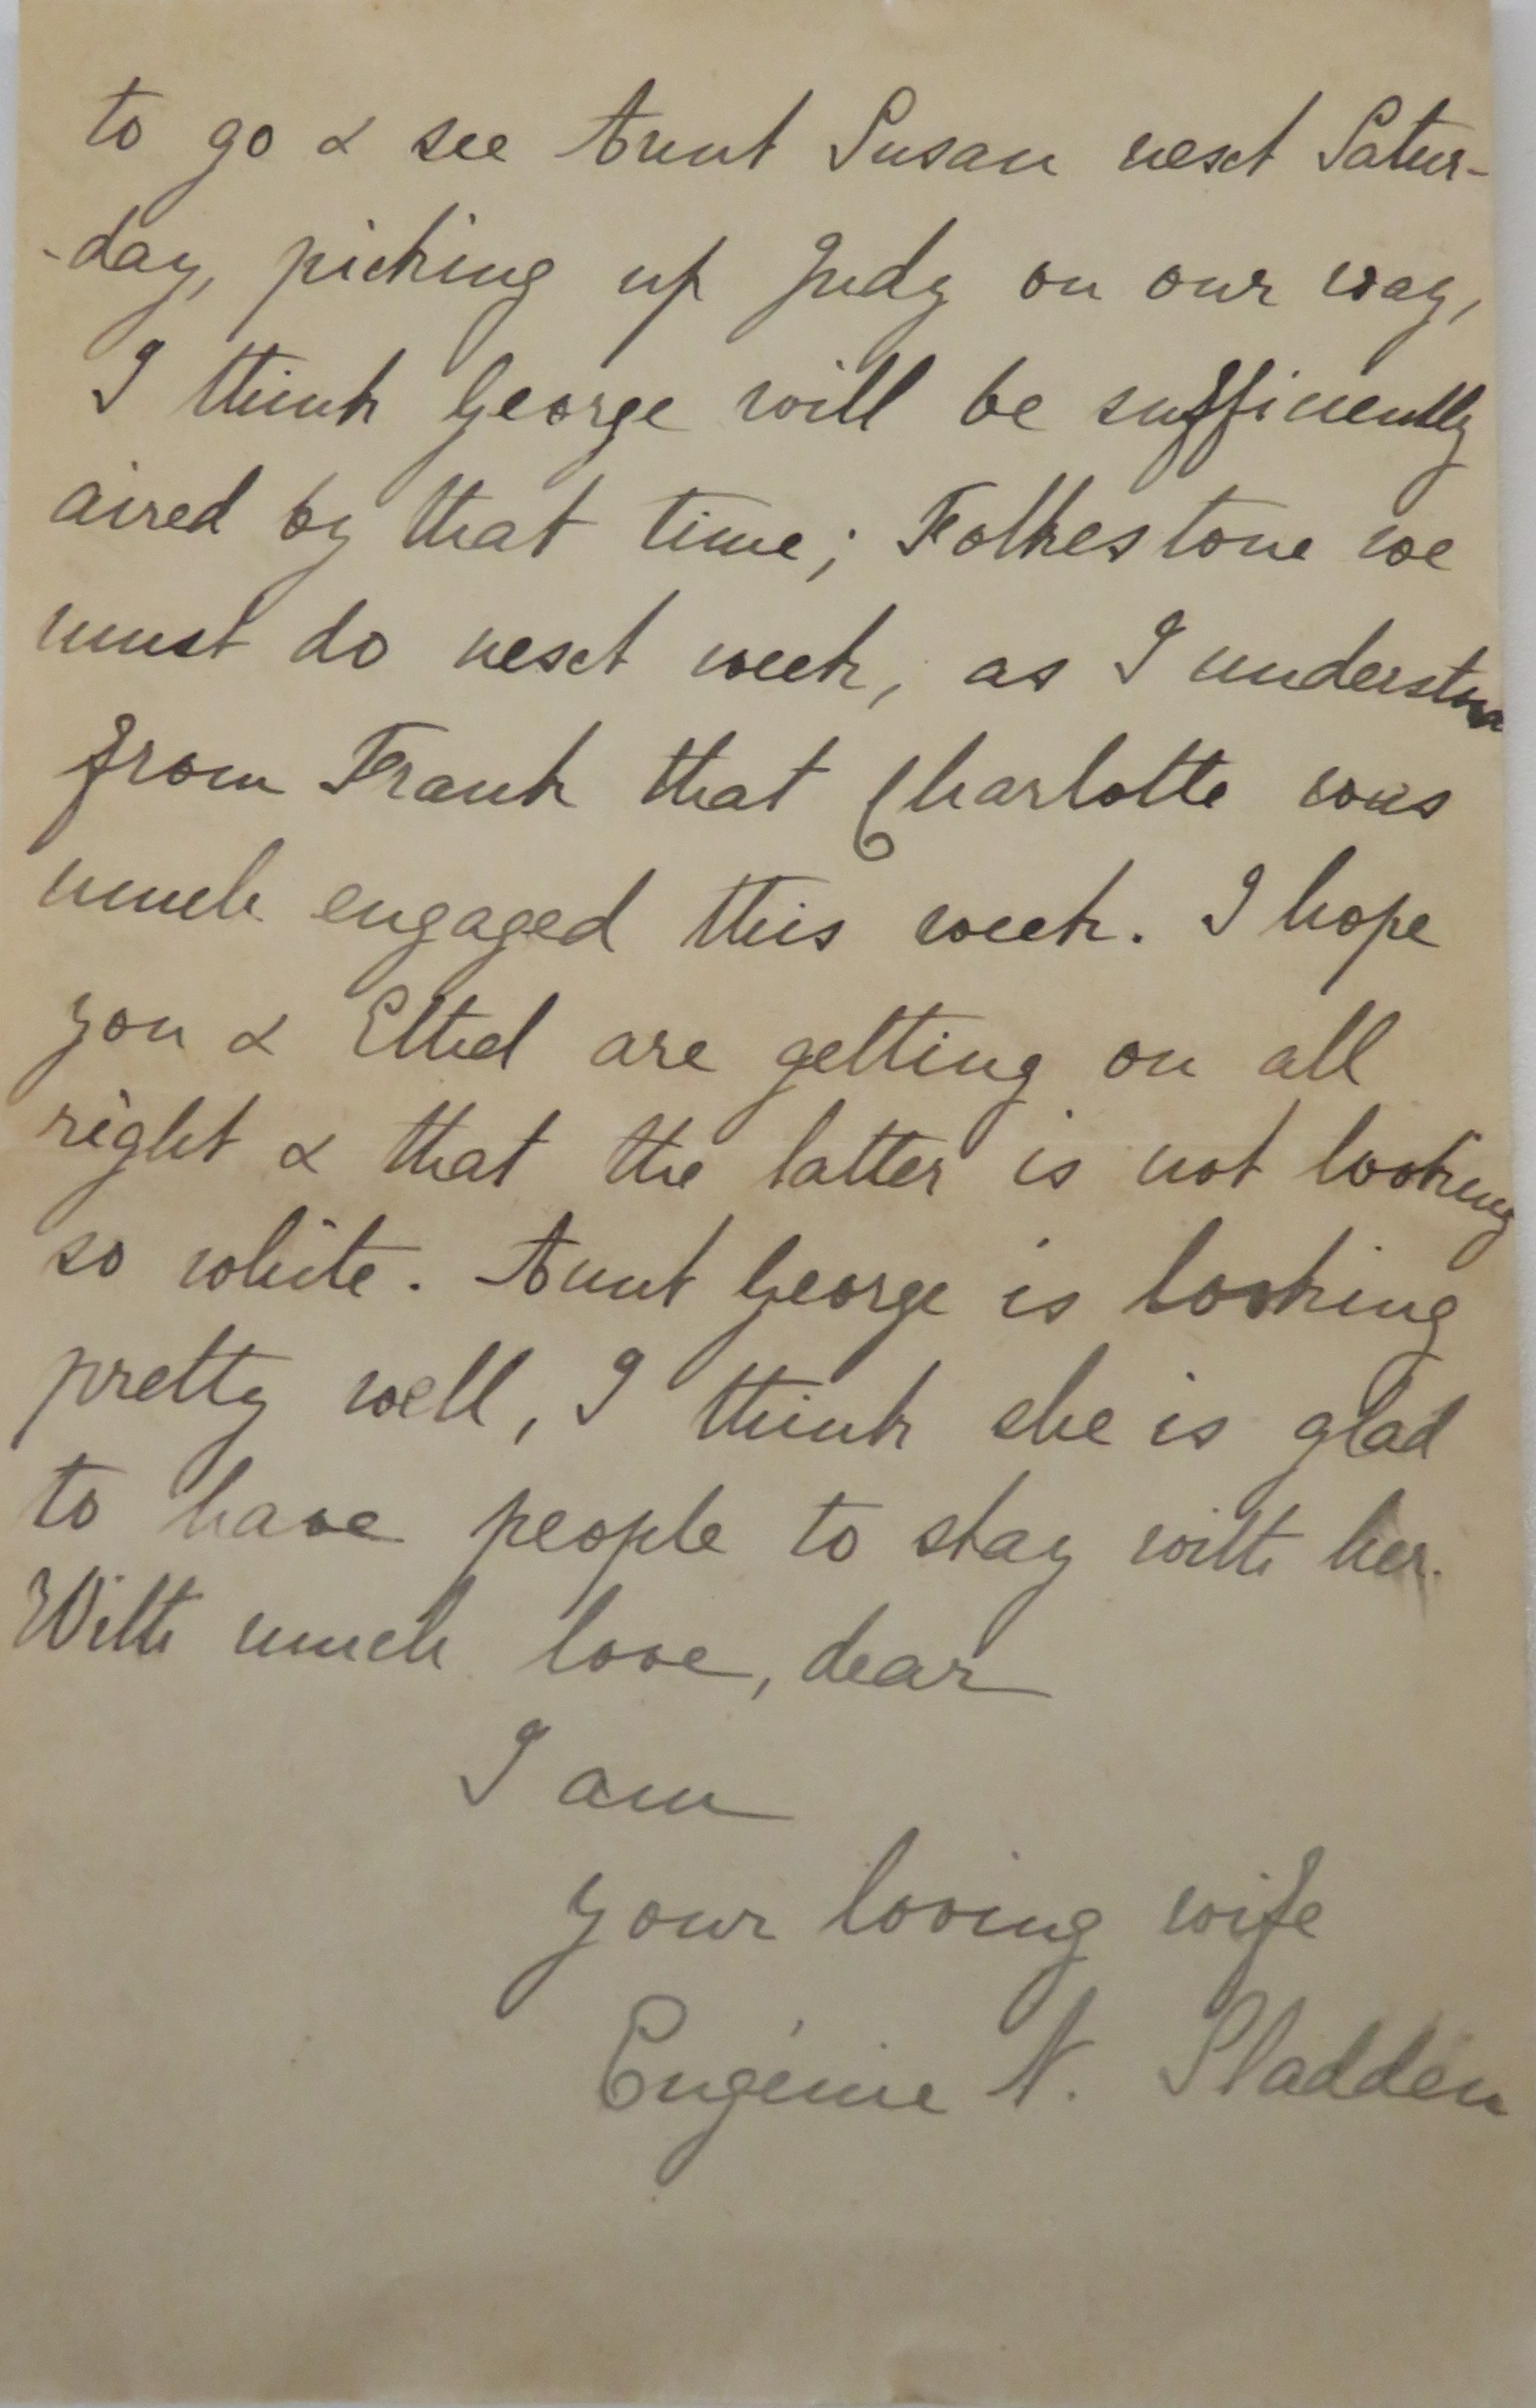 to go & see Aunt Susan next Satur-
-day, picking up Judy on our way,
I think George will be sufficiently
aired by that time; Folkestone we
must do next week, as I understand
from Frank that Charlotte was
much engaged this week. I hope
you & Ethel are getting on all
right & that the latter is not looking
so white. Aunt George is looking
pretty well, I think she is glad
to have people to stay with her.
With much love, dear
I am
your loving wife
Eugénie N. Sladden